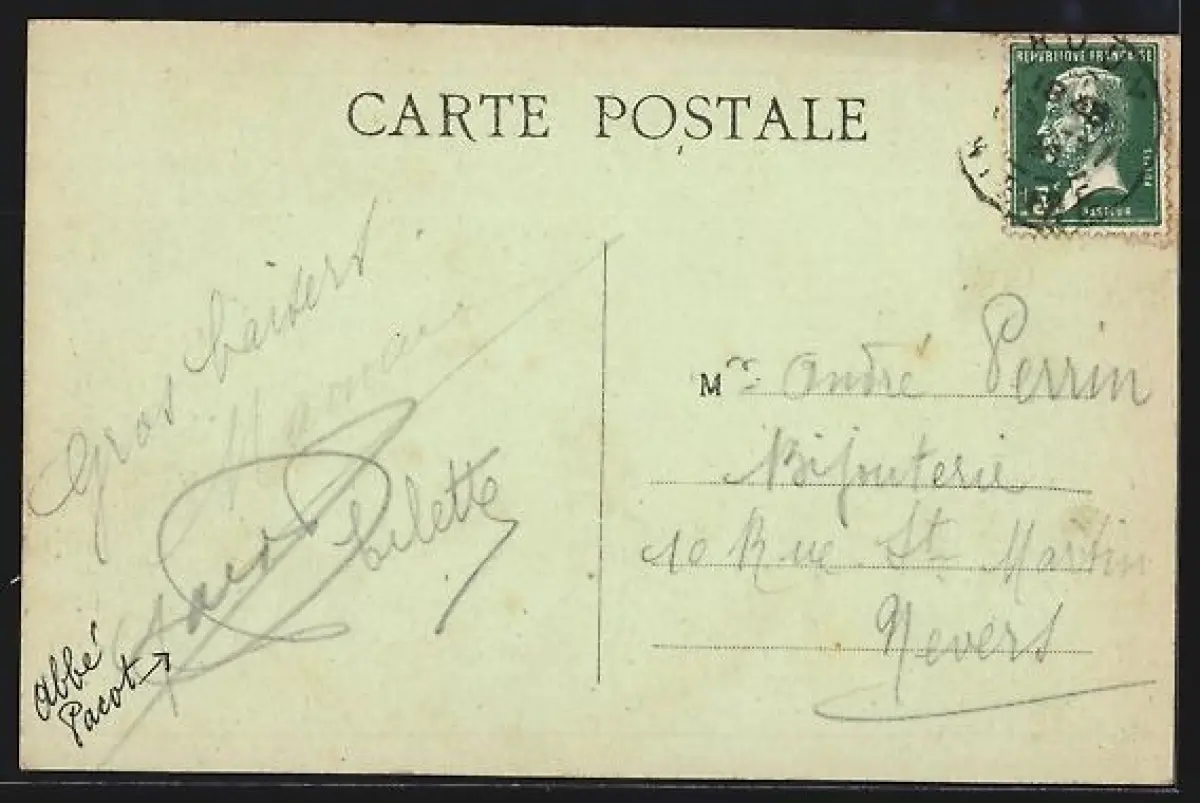 CARTE POSTALE
REPUBLIQUE FRANÇAISE
POSTES
15c
PASTEUR
Gros baisers
Maman
Pacot
Lilette
abbé
Pacot →
Mme André Perrin
Bijouterie
10 Rue St Martin
Nevers